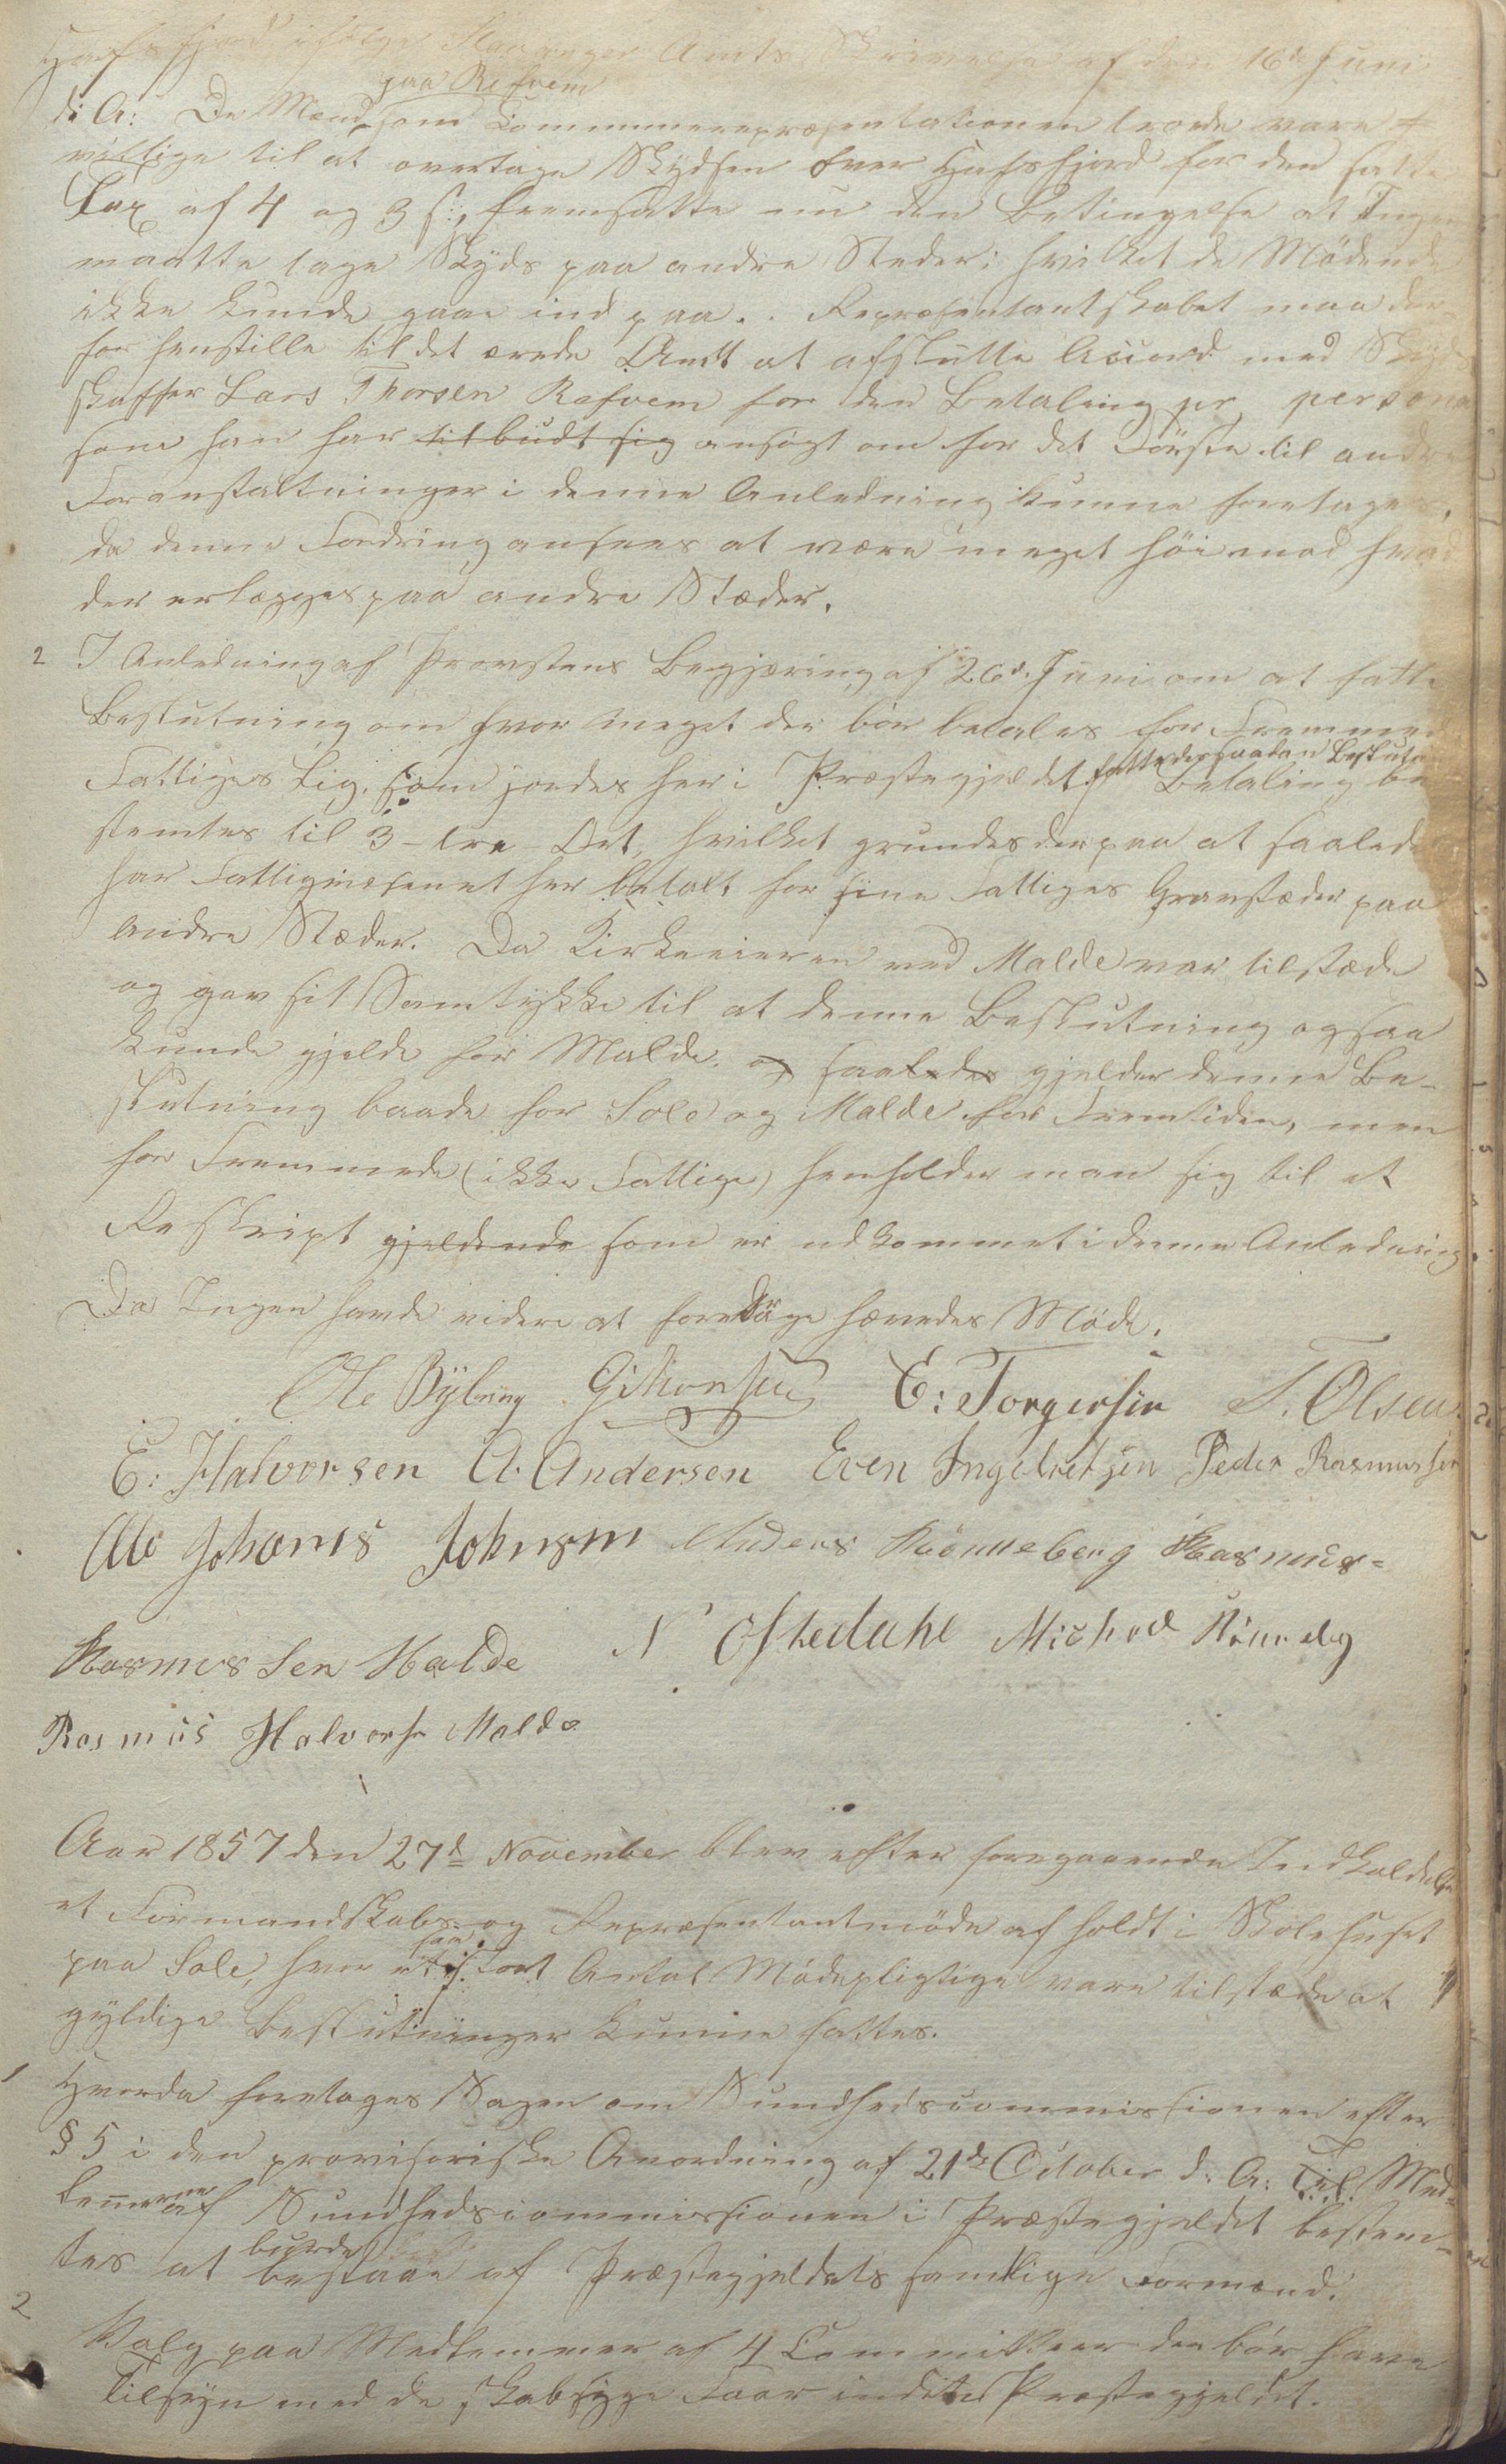 Hafsfjord ifølge Stavanger Amts Skrivelse af den 16de Juni
d: A: De Mænd paa Refsem som Communerepræsentationen troede vare
villige til at overtage Skydsen over Hafsfjord for den satte
Tax af 4 og 3 s:, fremsatte nu den Betingelse at Ingen
maatte tage Skyds paa andre Steder: hvilket de Mødende
ikke kunde gaae ind paa. Repræsentantskabet maa der-
for henstille til det ærede Amt at afslutte Accord med Skyds
skaffer Lars Thorsen Refsem for den Betaling pr. persona
som han har tilbudt sig ansøgt om for det Første til andre
Foranstaltninger i denne Anledning kunne foretages,
da denne Fordring ansees at være meget höi mod hvad
der erlægges paa andre Stæder.
2 I Anledning af Provstens Begjæring af 26de Juni om at fatte
Beslutning om hvor meget der bör betales for Fremmede
Fattiges Lig, som jordes her i Præstegjeldet, fattedes saadan Beslutn Betaling be
stemtes til 3 - tre - Ort, hvilket grundes derpaa at saaledes
har Fattigvæsenet her betalt for sine Fattiges Gravstæder paa
andre Stæder. Da Kirkeeieren ved Malde var tilstæde
og gav sit Samtykke til at denne Beslutning ogsaa
kunde gjelde for Malde, og saaledes gjelder denne Be-
slutning baade for Sole og Malde for Fremtiden, men
for Fremmede (ikke Fattige) henholder man sig til et
Reskript gjeldende som er udkommet i denne Anledning
Da Ingen havde videre at foredrage hævedes Møde.
Ole Byberg E: Torgersen T. Olsen
E: Halvorsen A. Andersen Even Ingebretsen Peder Rasmussen
Ole Johanis Johnsen Anders Rönneberg Rasmus-
Rasmus Sen Malde N Oftedahl Michael Rönneberg
Rasmus Halvorsen Malde
Aar 1857 den 27d November blev efter foregaaende Indkaldelse
et Formandskabs- og Repræsentantmöde afholdt i Skolehuset
paa Sole, hvor et saa stort Antal Mödepligtige vare tilstæde at
gyldige Beslutninger kunne fattes.
1 Hvorda foretoges Sagen om Sundhedscommissionen efter
§ 5 i den provisoriske Anordning af 21de October d: A: Til Med-
lemmerne af Sundhedscommissionen i Præstegjeldet bestem-
tes at burde bestaae af Præstegjeldets samtlige Formænd.
2
Valg paa Medlemmer af 4 Committeer der bör have
Tilsyn med de skabsyge Faar indited Præstegjeldet.